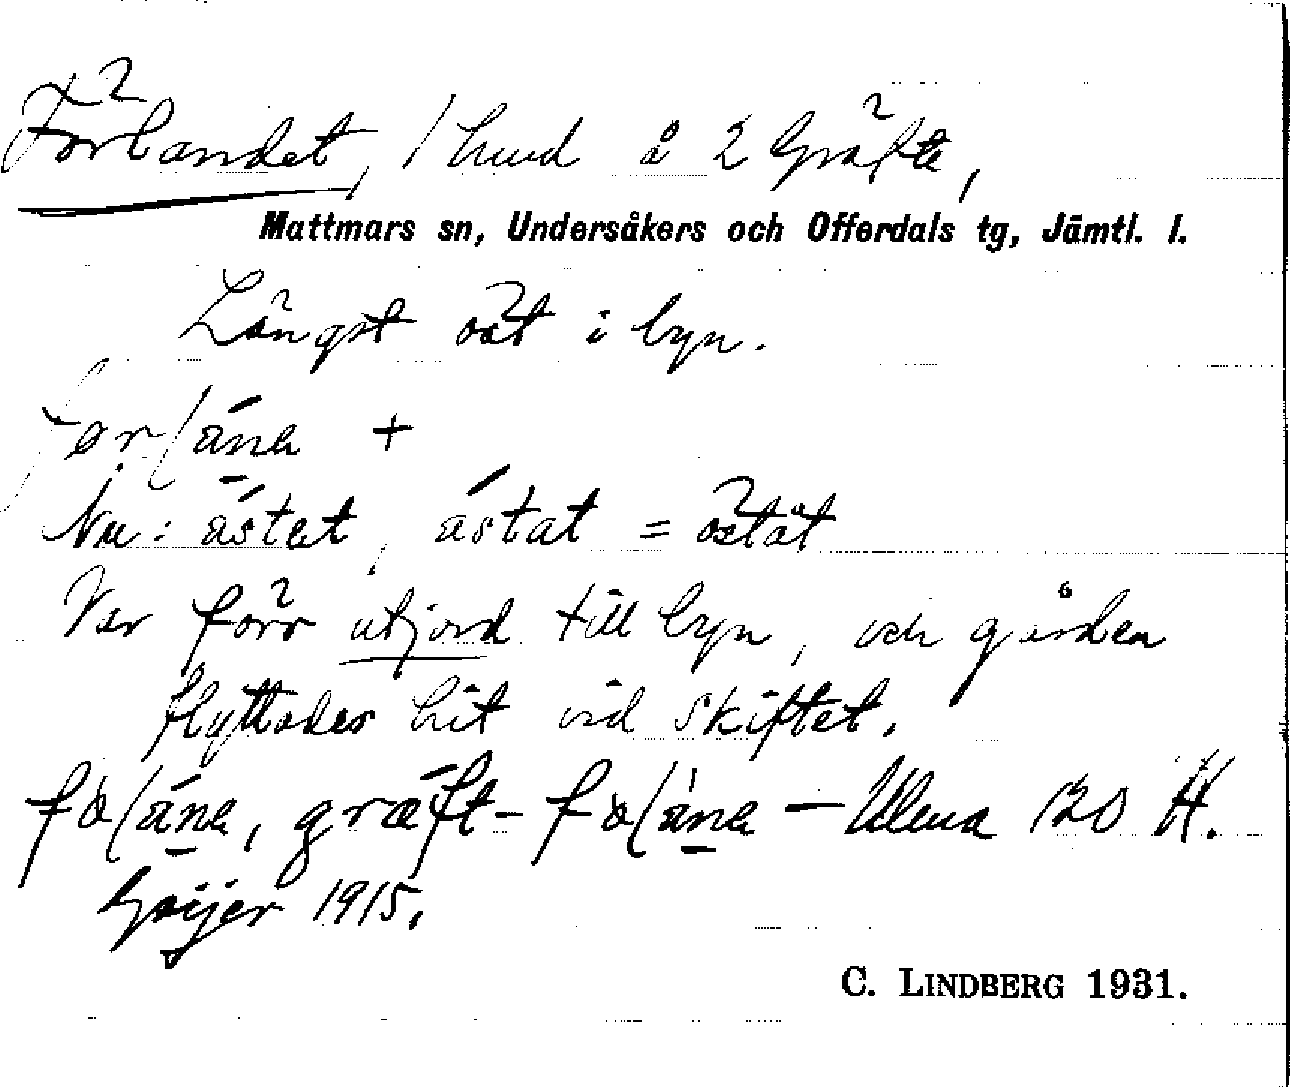 Förlandet, 1 hmd å 2 Gräfte,
Mattmars sn, Undersåkers och Offerdals tg, Jämtl. l.
Längst öst i byn.
før/ána +
Nu: ästet, ástat = östät
Var förr utjord till byn, och gården
flyttades hit vid skiftet.
fø/ána, græft- fø/àna – Ulma 120 H.
Geijer 1915.
C. LINDBERG 1931.